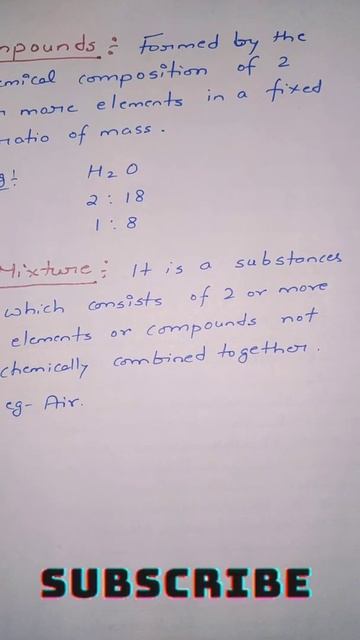 mpounds : Formed by the
emical composition of 2
r more elements in a fixed
ratio of mass.
g: H2O
2 : 18
1 : 8
Mixture : It is a substances
which consists of 2 or more
elements or compounds not
chemically combined together.
eg- Air.
SUBSCRIBE